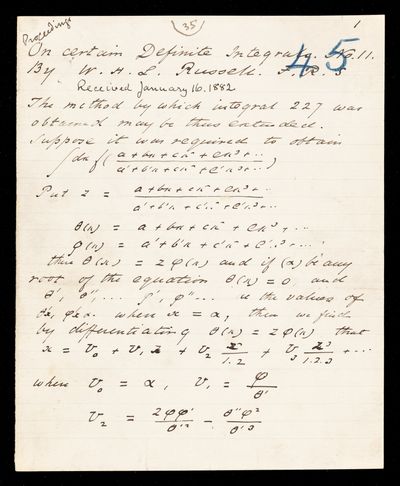 Proceedings
(35)
1
45
On certain Definite Integrals. No. 11.
By W. H. L. Russell. F. R. S
Received January 16. 1882
The method by which integral 227 was
obtained may be thus extended.
Suppose it was required to obtain
∫dx f( (a + bx + cx² + ex³ + ··) / (a' + b'x + c'x² + e'x³ + ··) )
Put z = (a + bx + cx² + ex³ + ··) / (a' + b'x + c'x² + e'x³ + ··)
θ(x) = a + bx + cx² + ex³ + ···
φ(x) = a' + b'x + c'x² + e'x³ + ···
then θ(x) = zφ(x) and if (α) be any
root of the equation θ(x) = 0, and
θ', θ'', ... φ', φ'' ... be the values of
when x = α, then we find
by differentiating θ(x) = zφ(x) that
x = V₀ + V₁z + V₂ z²/1.2 + V₃ z³/1.2.3 + ···
where V₀ = α, V₁ = φ/θ'
V₂ = 2φφ'/θ'² - θ''φ²/θ'³